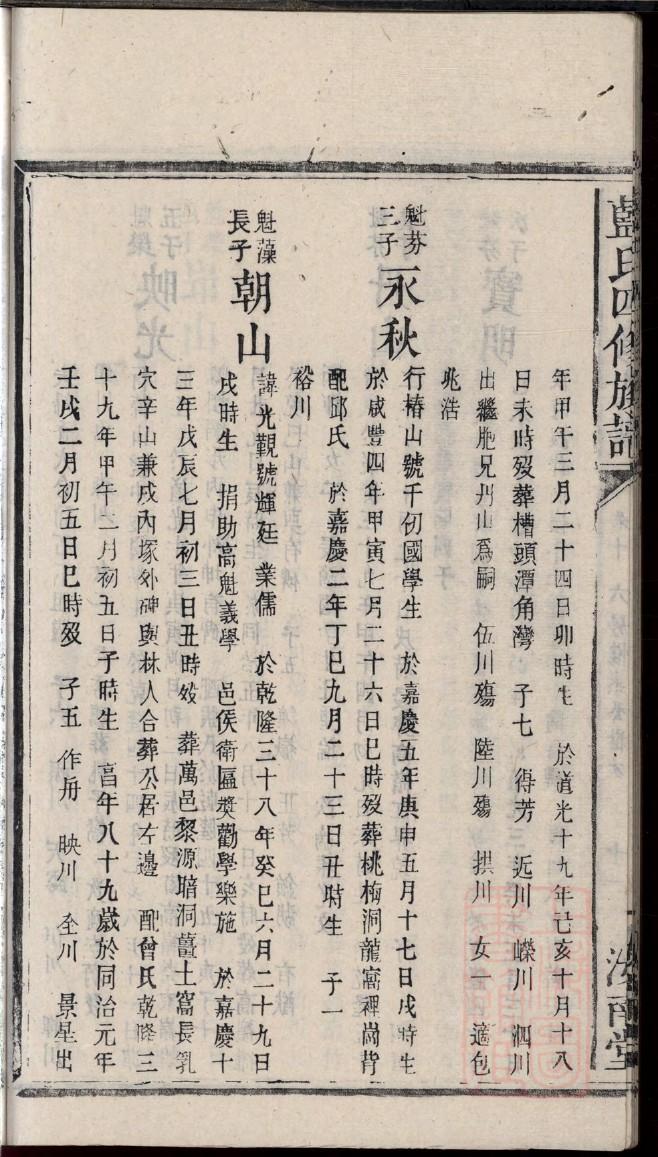 藍氏四修族譜
汝南堂
年甲午三月二十四日卯時生 於道光十九年己亥十月十八
日未時歿葬槽頭潭角灣 子七 得芳 近川 嶸川 泗川
出繼胞兄丹山為嗣 伍川殤 陸川殤 拱川 女一 適包
兆浩
魁芬三子 永秋
行椿山號千仞國學生 於嘉慶五年庚申五月十七日戌時生
於咸豐四年甲寅七月二十六日巳時歿葬桃梅洞龍窩裡崗背
配邱氏 於嘉慶二年丁巳九月二十三日丑時生 子一
裕川
魁藻長子 朝山
諱光觀號輝廷 業儒 於乾隆三十八年癸巳六月二十九日
戌時生 捐助高魁義學 邑侯衛區獎勸學樂施 於嘉慶十
三年戊辰七月初三日丑時歿 葬萬邑黎源暗洞薑土窩長乳
穴辛山兼戌內塚外碑與林人合葬公居左邊 配曾氏乾隆三
十九年甲午二月初五日子時生 亯年八十九歲於同治元年
壬戌二月初五日巳時歿 子五 作舟 映川 至川 景星出